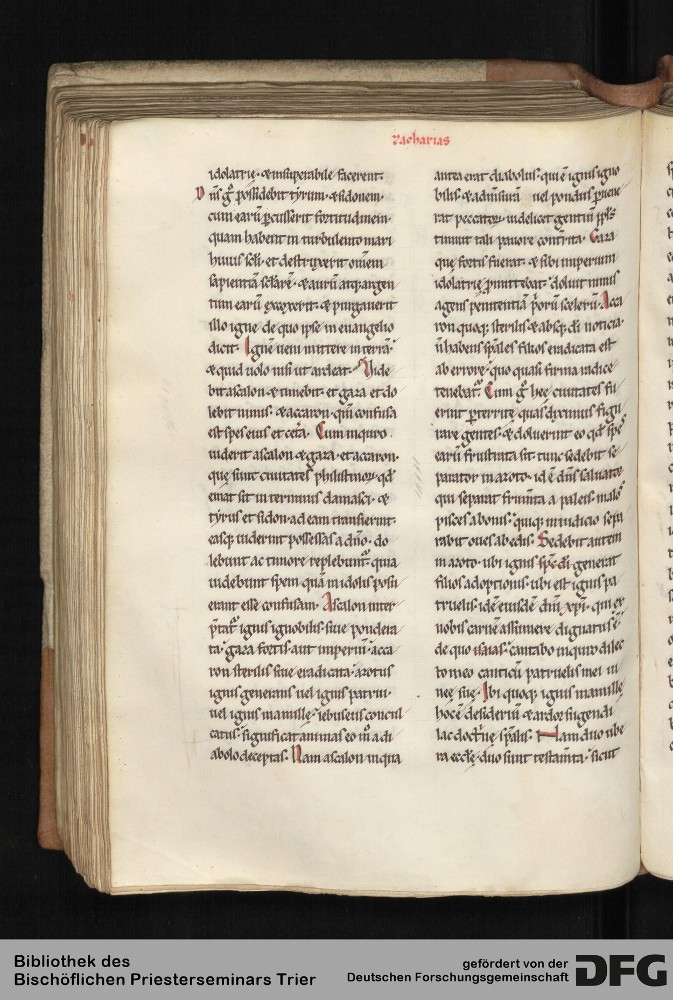 Zacharias
idolatrię · & insuperabile facerent·
Dñs g̊ possidebit tyrum · & sidonem·
cum earũ ꝑcusserit fortitudinem·
quam habent in turbulento mari
huius sc̃li · et destruxerit om̃em
sapientiã sc̃larẽ · & aurũ atq; argen
tum earũ excoxerit · & purgauerit
illo igne de quo ipse in euangelio
dicit · Ignẽ ueni mittere in terrã·
& quid uolo nisi ut ardeat · Vide
bit ascalon & timebit · et gaza et do
lebit nimis · & accaron · qm̃ confusa
est spes eius et cet̃a · Cum inquio
uiderit ascalon & gaza · et accaron·
quę sunt ciuitates philistinoꝝ · qđ
emat sit in terminis damasci · &
tyrus et sidon · ad eam transierint·
easq; uiderint possessas a dño · do
lebunt ac timore replebunt᷒ · quia
uidebunt spem quã in idolis posu
erant esse confusam · Ascalon inter
p̃tat᷒ ignis ignobilis · siue pondera
ta · gaza fortis · aut imperiũ · acca
ron sterilis siue eradicata · azotus
ignis generans uel ignis patrui·
uel ignis mamillę · iebuseus concul
catus · significat animas eo m̊ a di
abolo deceptas · Nam ascalon in qua
antea erat diabolus · qui ẽ ignis igno
bilis · & ad m̃surã uel pondus ꝑuene
rat peccatoꝝ · uidelicet gentiũ ppl̃s
timuit tali pauore cont̃rita · Gaza
que fortis fuerat · & sibi imperium
idolatrię ꝓmittebat · doluit nimis
agens penitentiã p̃orũ scelerũ · Acca
ron quoq; sterilis & absq; dĩ noticia·
ñ habens sp̃ales filios eradicata est
ab errore · quo quasi firma radice
tenebat᷒ · Cum g̊ hee ciuitates fu
erint ꝑterritę quas diximus figu
rare gentes · & doluerint eo qđ spes
earũ frustrata sit · tunc sedebit se
parator in azoto · id ẽ dñs saluator
qui separat frum̃ta a paleis · malos
pisces a bonis · quiq; in iudicio sepa
rabit oues ab ędis · Sedebit autem
in azoto · ubi ignis sp̃c dĩ generat
filios adoptionis · ubi est ignis pa
truelis · idẽ eiusdẽ dñi xp̃i · qui ex
nobis carnẽ assumere dignatus ẽ·
de quo isaias · cantabo inquid dilec
to meo canticũ patruelis mei ui
neę suę · Ibi quoq; ignis mamillę
hoc ẽ desideriũ & ardor sugendi
lac doct̃nę sp̃alis · Nam duo ube
ra eccl̃ę · duo sunt testam̃ta · sicut
Bibliothek des
Bischöflichen Priesterseminars Trier
gefördert von der
Deutschen Forschungsgemeinschaft
DFG